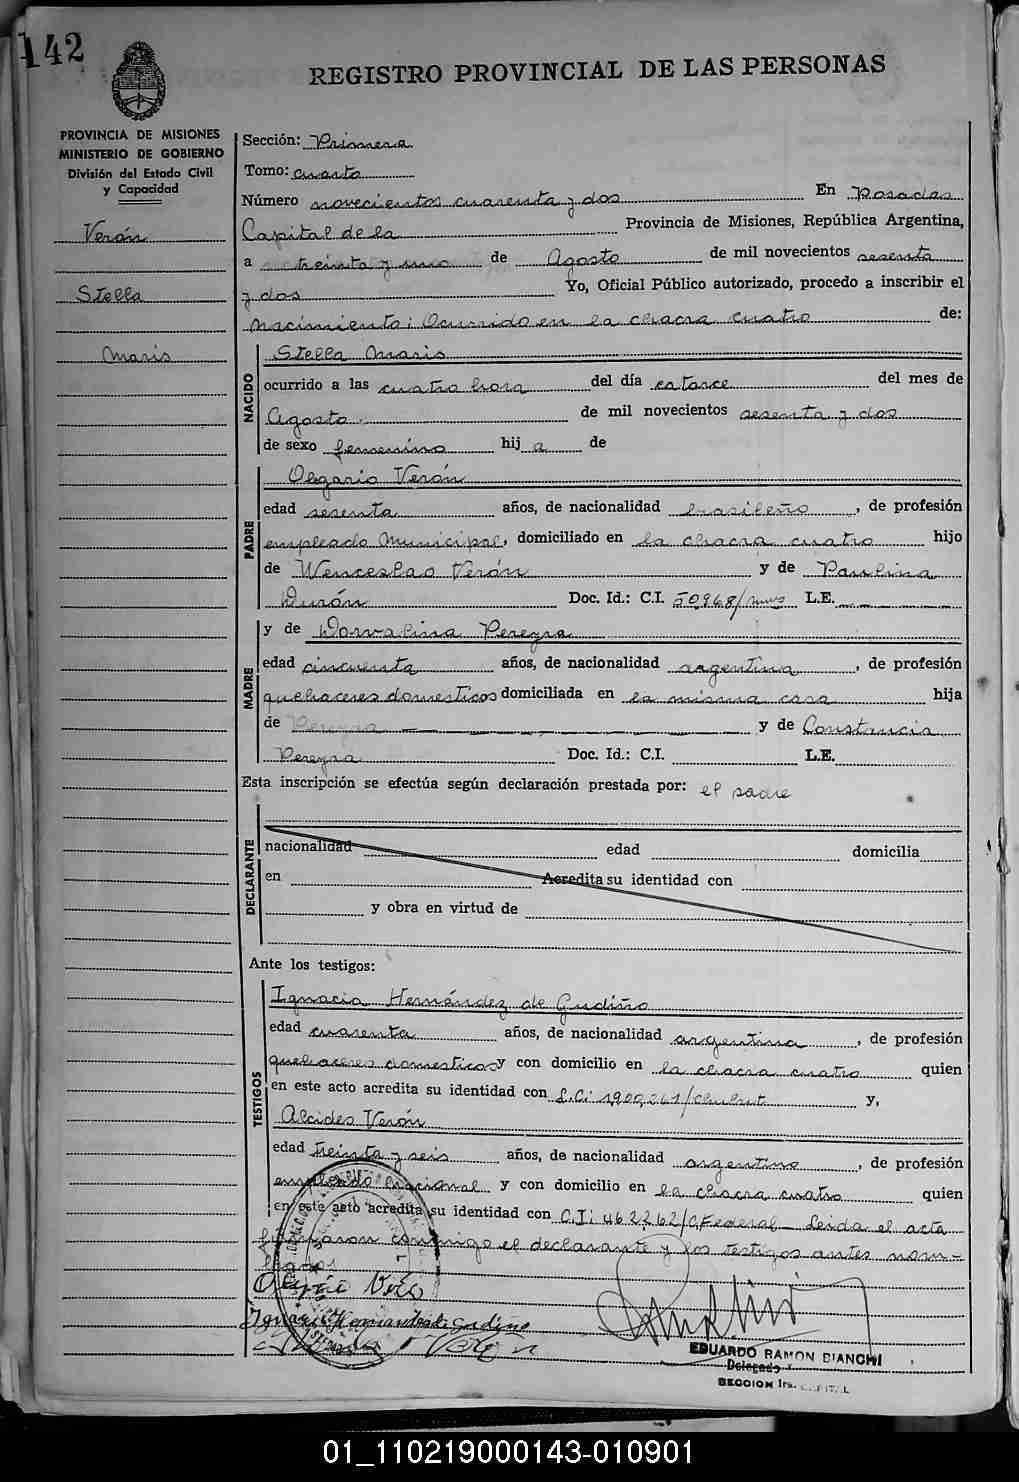 142
REGISTRO PROVINCIAL DE LAS PERSONAS
PROVINCIA DE MISIONES
MINISTERIO DE GOBIERNO
División del Estado Civil
y Capacidad
Verón
Stella
Maris
Sección: Primera
Tomo: cuarto
Número novecientos cuarenta y dos En Posadas
Capital de la Provincia de Misiones, República Argentina,
a treinta y uno de Agosto de mil novecientos sesenta
y dos Yo, Oficial Público autorizado, procedo a inscribir el
nacimiento: Ocurrido en la chacra cuatro de:
NACIDO
Stella Maris
ocurrido a las cuatro hora del día catorce del mes de
Agosto de mil novecientos sesenta y dos
de sexo femenino hij a de
PADRE
Olegario Verón
edad sesenta años, de nacionalidad brasileño, de profesión
empleado Municipal, domiciliado en la chacra cuatro hijo
de Wenceslao Verón y de Paulina
Durón Doc. Id.: C.I. 50968/ L.E.
MADRE
y de Dorvalina Pereyra
edad cincuenta años, de nacionalidad argentina, de profesión
quehaceres domesticos domiciliada en la misma casa hija
de Pereyra y de Constancia
Pereyra Doc. Id.: C.I. L.E.
Esta inscripción se efectúa según declaración prestada por: el padre
DECLARANTE
nacionalidad edad domicilia
en Acredita su identidad con
y obra en virtud de
Ante los testigos:
TESTIGOS
Ignacia Hernández de Gudiño
edad cuarenta años, de nacionalidad argentina, de profesión
quehaceres domesticos y con domicilio en la chacra cuatro quien
en este acto acredita su identidad con L.C: 1.900.261/Chubut y,
Alcides Verón
edad treinta y seis años, de nacionalidad argentino, de profesión
empleado nacional y con domicilio en la chacra cuatro quien
en este acto acredita su identidad con C.I: 462262/C.Federal_ Leida el acta
firmaron conmigo el declarante y los testigos antes nom-
brados
Ignacia Hernandez de Gudiño
Verón
EDUARDO RAMON BIANCHI
Delegado
SECCION 1ra. CAPITAL
01_110219000143-010901